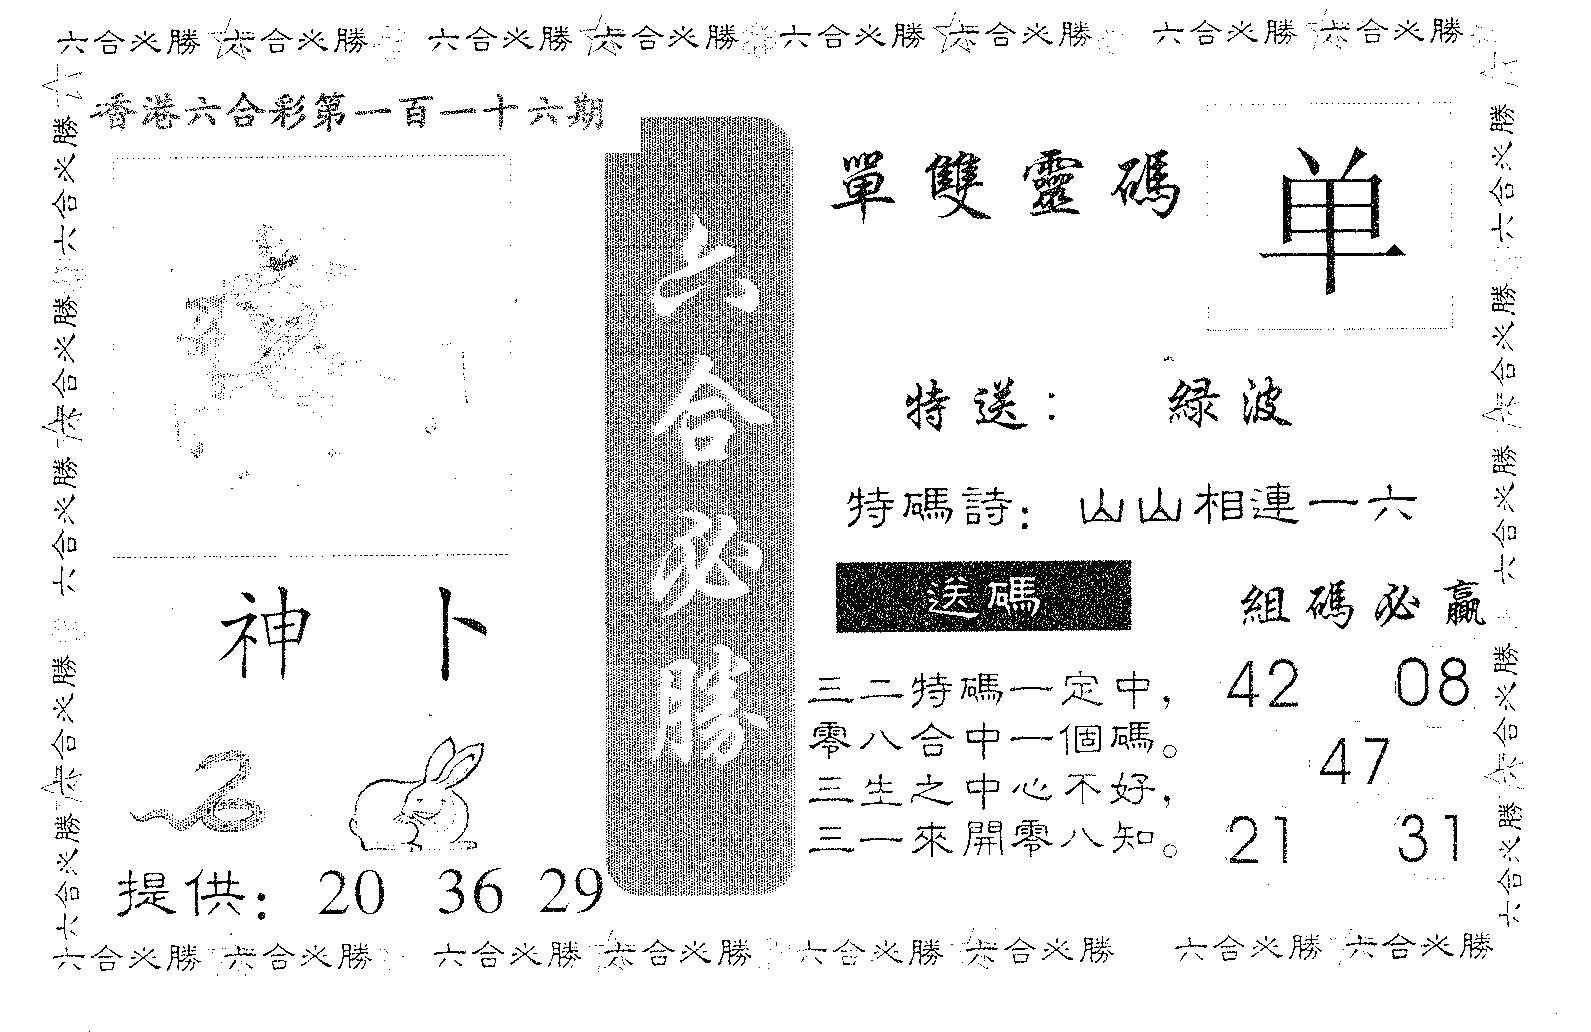 六合必勝 六合必勝 六合必勝 六合必勝 六合必勝 六合必勝 六合必勝 六合必勝
香港六合彩第一百一十六期
六合必勝
單雙靈碼
单
特送： 綠波
特碼詩：山山相連一六
神卜
送碼
三二特碼一定中，
零八合中一個碼。
三生之中心不好，
三一來開零八知。
組碼必贏
42 08
47
21 31
提供：20 36 29
六合必勝 六合必勝 六合必勝 六合必勝 六合必勝
六合必勝 六合必勝 六合必勝 六合必勝 六合必勝
六合必勝 六合必勝 六合必勝 六合必勝 六合必勝 六合必勝 六合必勝 六合必勝